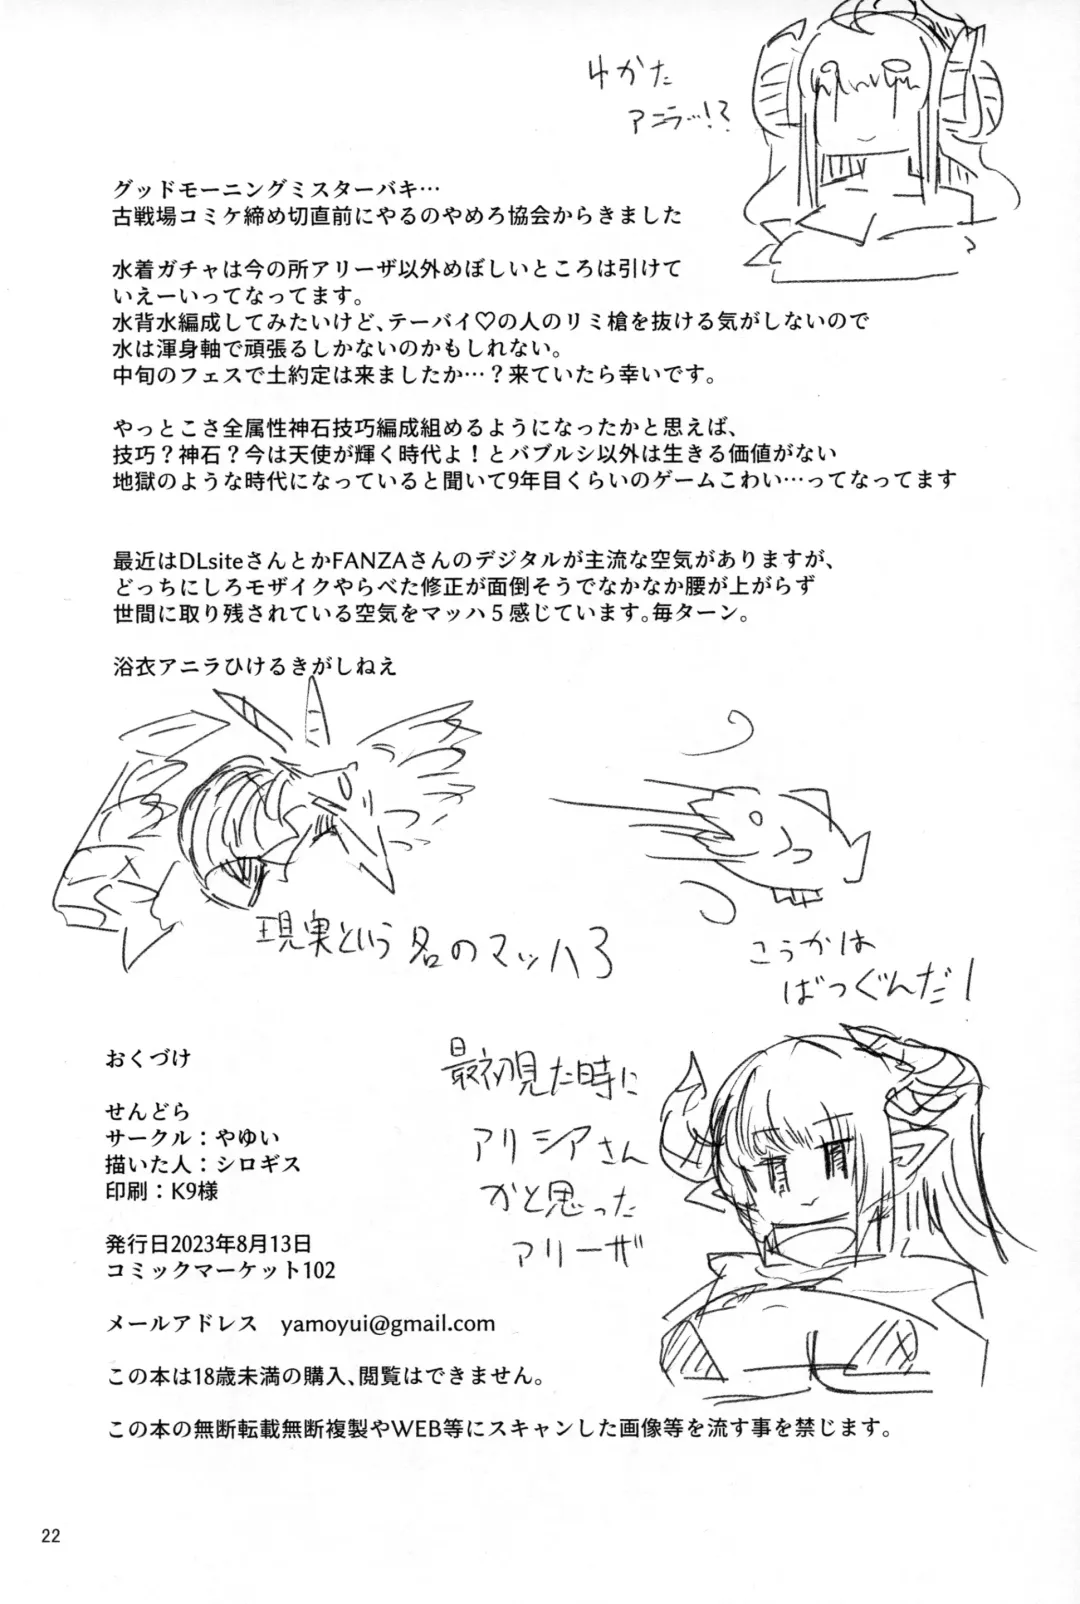 ゆかた
アニラッ!?
グッドモーニングミスターバキ…
古戦場コミケ締め切直前にやるのやめろ協会からきました
水着ガチャは今の所アリーザ以外めぼしいところは引けて
いえーいってなってます。
水背水編成してみたいけど、テーバイ♡の人のリミ槍を抜ける気がしないので
水は渾身軸で頑張るしかないのかもしれない。
中旬のフェスで土約定は来ましたか…？来ていたら幸いです。
やっとこさ全属性神石技巧編成組めるようになったかと思えば、
技巧？神石？今は天使が輝く時代よ！とバブルシ以外は生きる価値がない
地獄のような時代になっていると聞いて9年目くらいのゲームこわい…ってなってます
最近はDLsiteさんとかFANZAさんのデジタルが主流な空気がありますが、
どっちにしろモザイクやらべた修正が面倒そうでなかなか腰が上がらず
世間に取り残されている空気をマッハ５感じています。毎ターン。
浴衣アニラひけるきがしねえ
現実という名のマッハ3
こうかは
ばつぐんだ！
最初見た時に
アリシアさん
かと思った
アリーザ
おくづけ
せんどら
サークル：やゆい
描いた人：シロギス
印刷：K9様
発行日2023年8月13日
コミックマーケット102
メールアドレス　yamoyui@gmail.com
この本は18歳未満の購入、閲覧はできません。
この本の無断転載無断複製やWEB等にスキャンした画像等を流す事を禁じます。
22